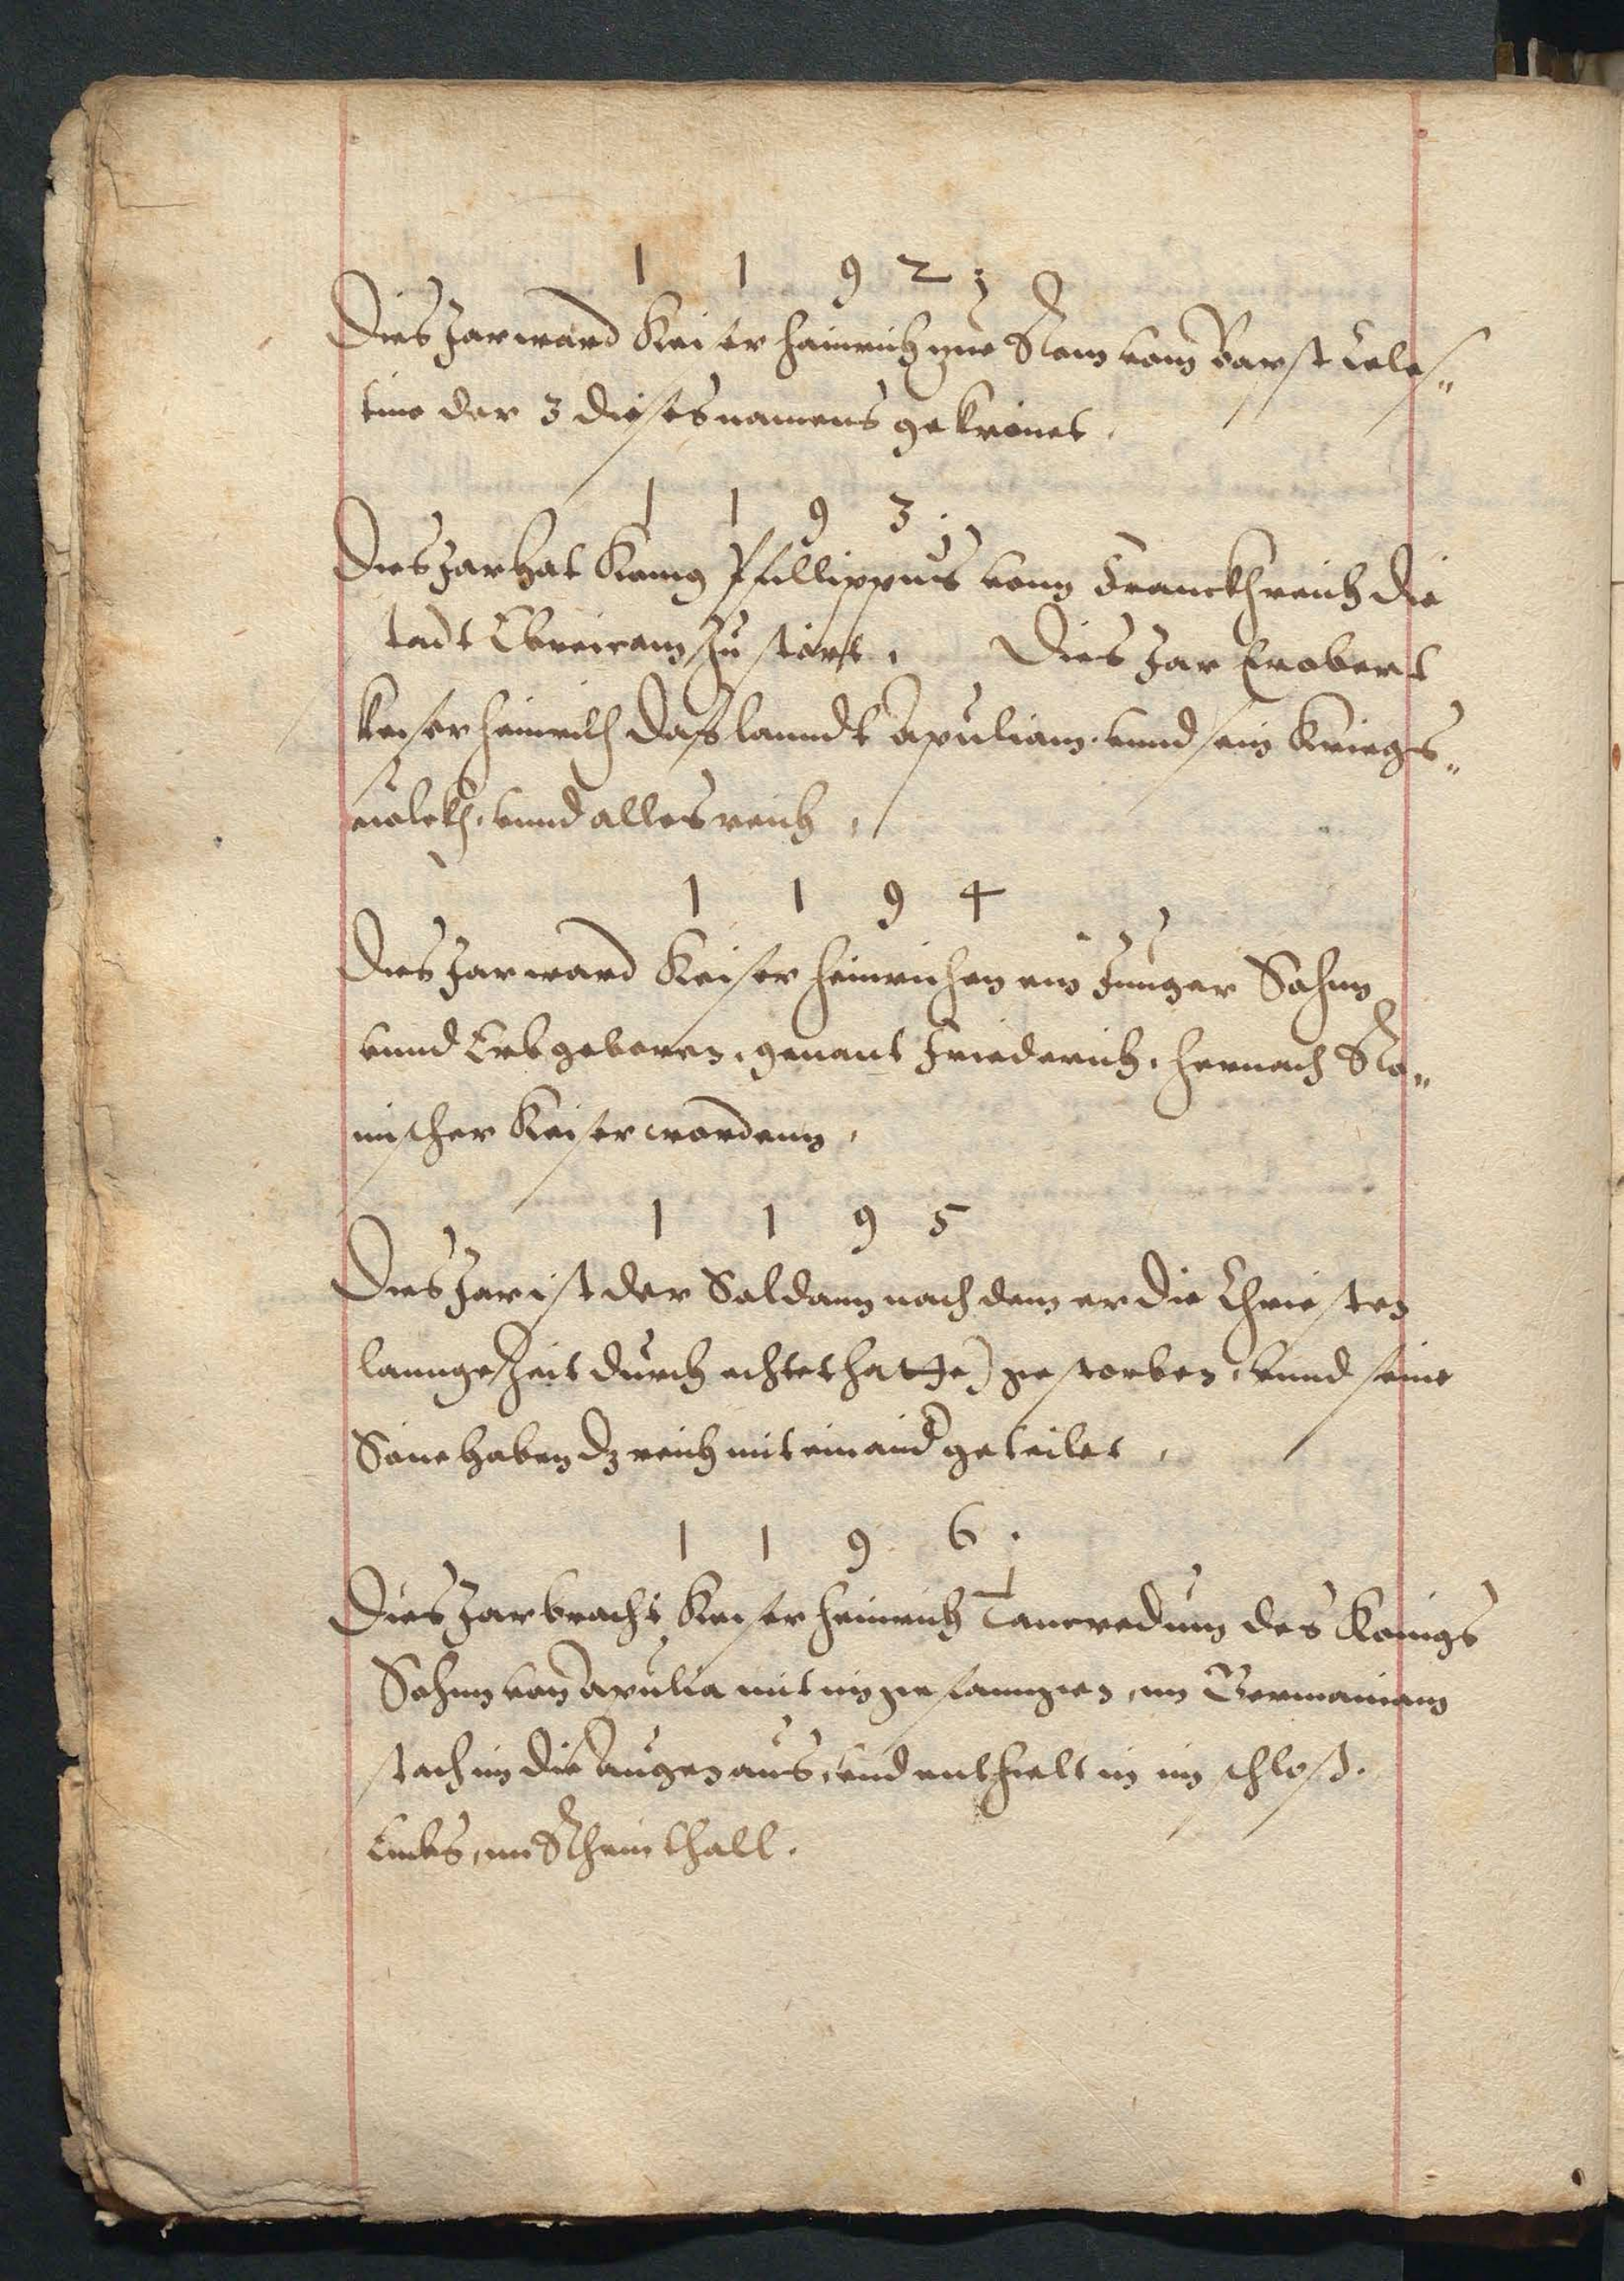 1 1 9 2 :
Dies Jar ward Keiser Heinrich zue Rom vom Barst Celes„
tino der 3 dieses namens gekrönet.
1 1 9 3 .
Dies Jar hat Konig Phillippus vonn Franckhreich die
tadt Ebreicam zu stört. Dies Jar Erobert
keiser heinrich dass lanndt Apuliam. vnnd sein Kriegs„
volckh. vnnd alles reich.
1 1 9 4
Dies Jar ward Keiser Heinrichen ein Junger Sohnn
vnnd Erb geboren. genant Friederich. hernach Rö„
mischer Keiser wordenn.
1 1 9 5
Dies Jar ist der Soldann nach dem er die Christen
lannge Zeit durch echtet hatte) gestorben. vnnd seine
Söne haben dz reich mit einand geteilet.
1 1 9 6 .
Dies Jar bracht Keiser heinrich Tancredum des Konigs
Sohnn von Apulia mit im gefanngen, inn Germaniam
stach im die Augen aus, vnd enthielt in im schloß.
Embs, im Rheinthall.